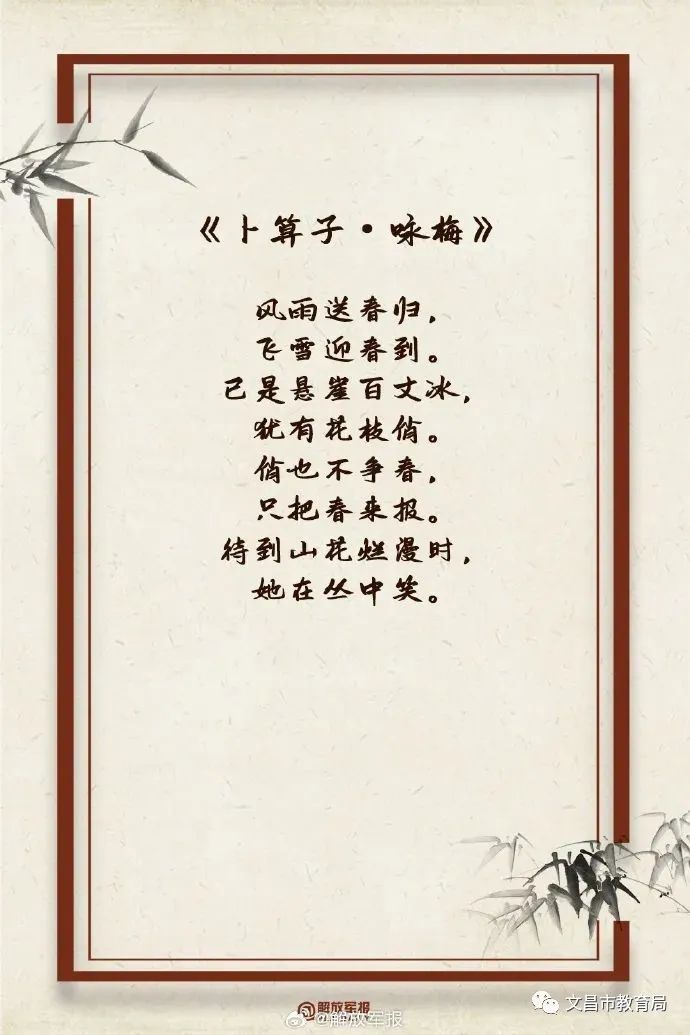 《卜算子·咏梅》
风雨送春归，
飞雪迎春到。
已是悬崖百丈冰，
犹有花枝俏。
俏也不争春，
只把春来报。
待到山花烂漫时，
她在丛中笑。
@解放军报
@解放军报
文昌市教育局